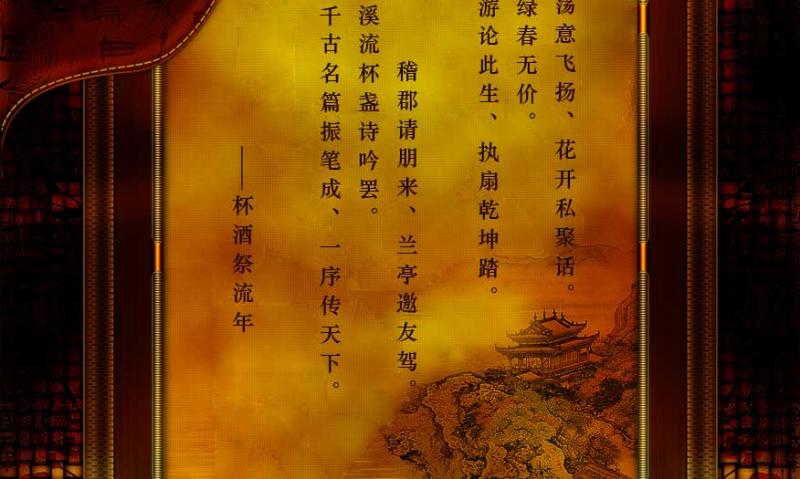 荡意飞扬、花开私聚话。
绿春无价。
游论此生、执扇乾坤踏。
稽郡请朋来、兰亭邀友驾。
溪流杯盏诗吟罢。
千古名篇振笔成、一序传天下。
——杯酒祭流年